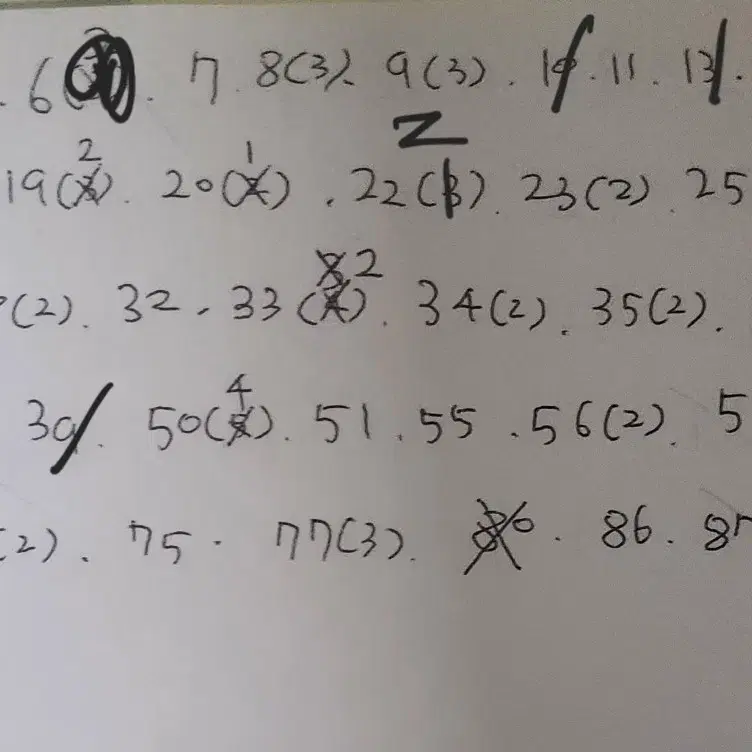 . 6 . 7 . 8(3). 9(3) . 10 . 11 . 13 .
19(2) . 20(1) . 22(2) . 23(2) . 25
(2) . 32 . 33(2) . 34(2) . 35(2) .
39 . 50(4) . 51 . 55 . 56(2) . 5
(2) . 75 . 77(3) . 86 . 87